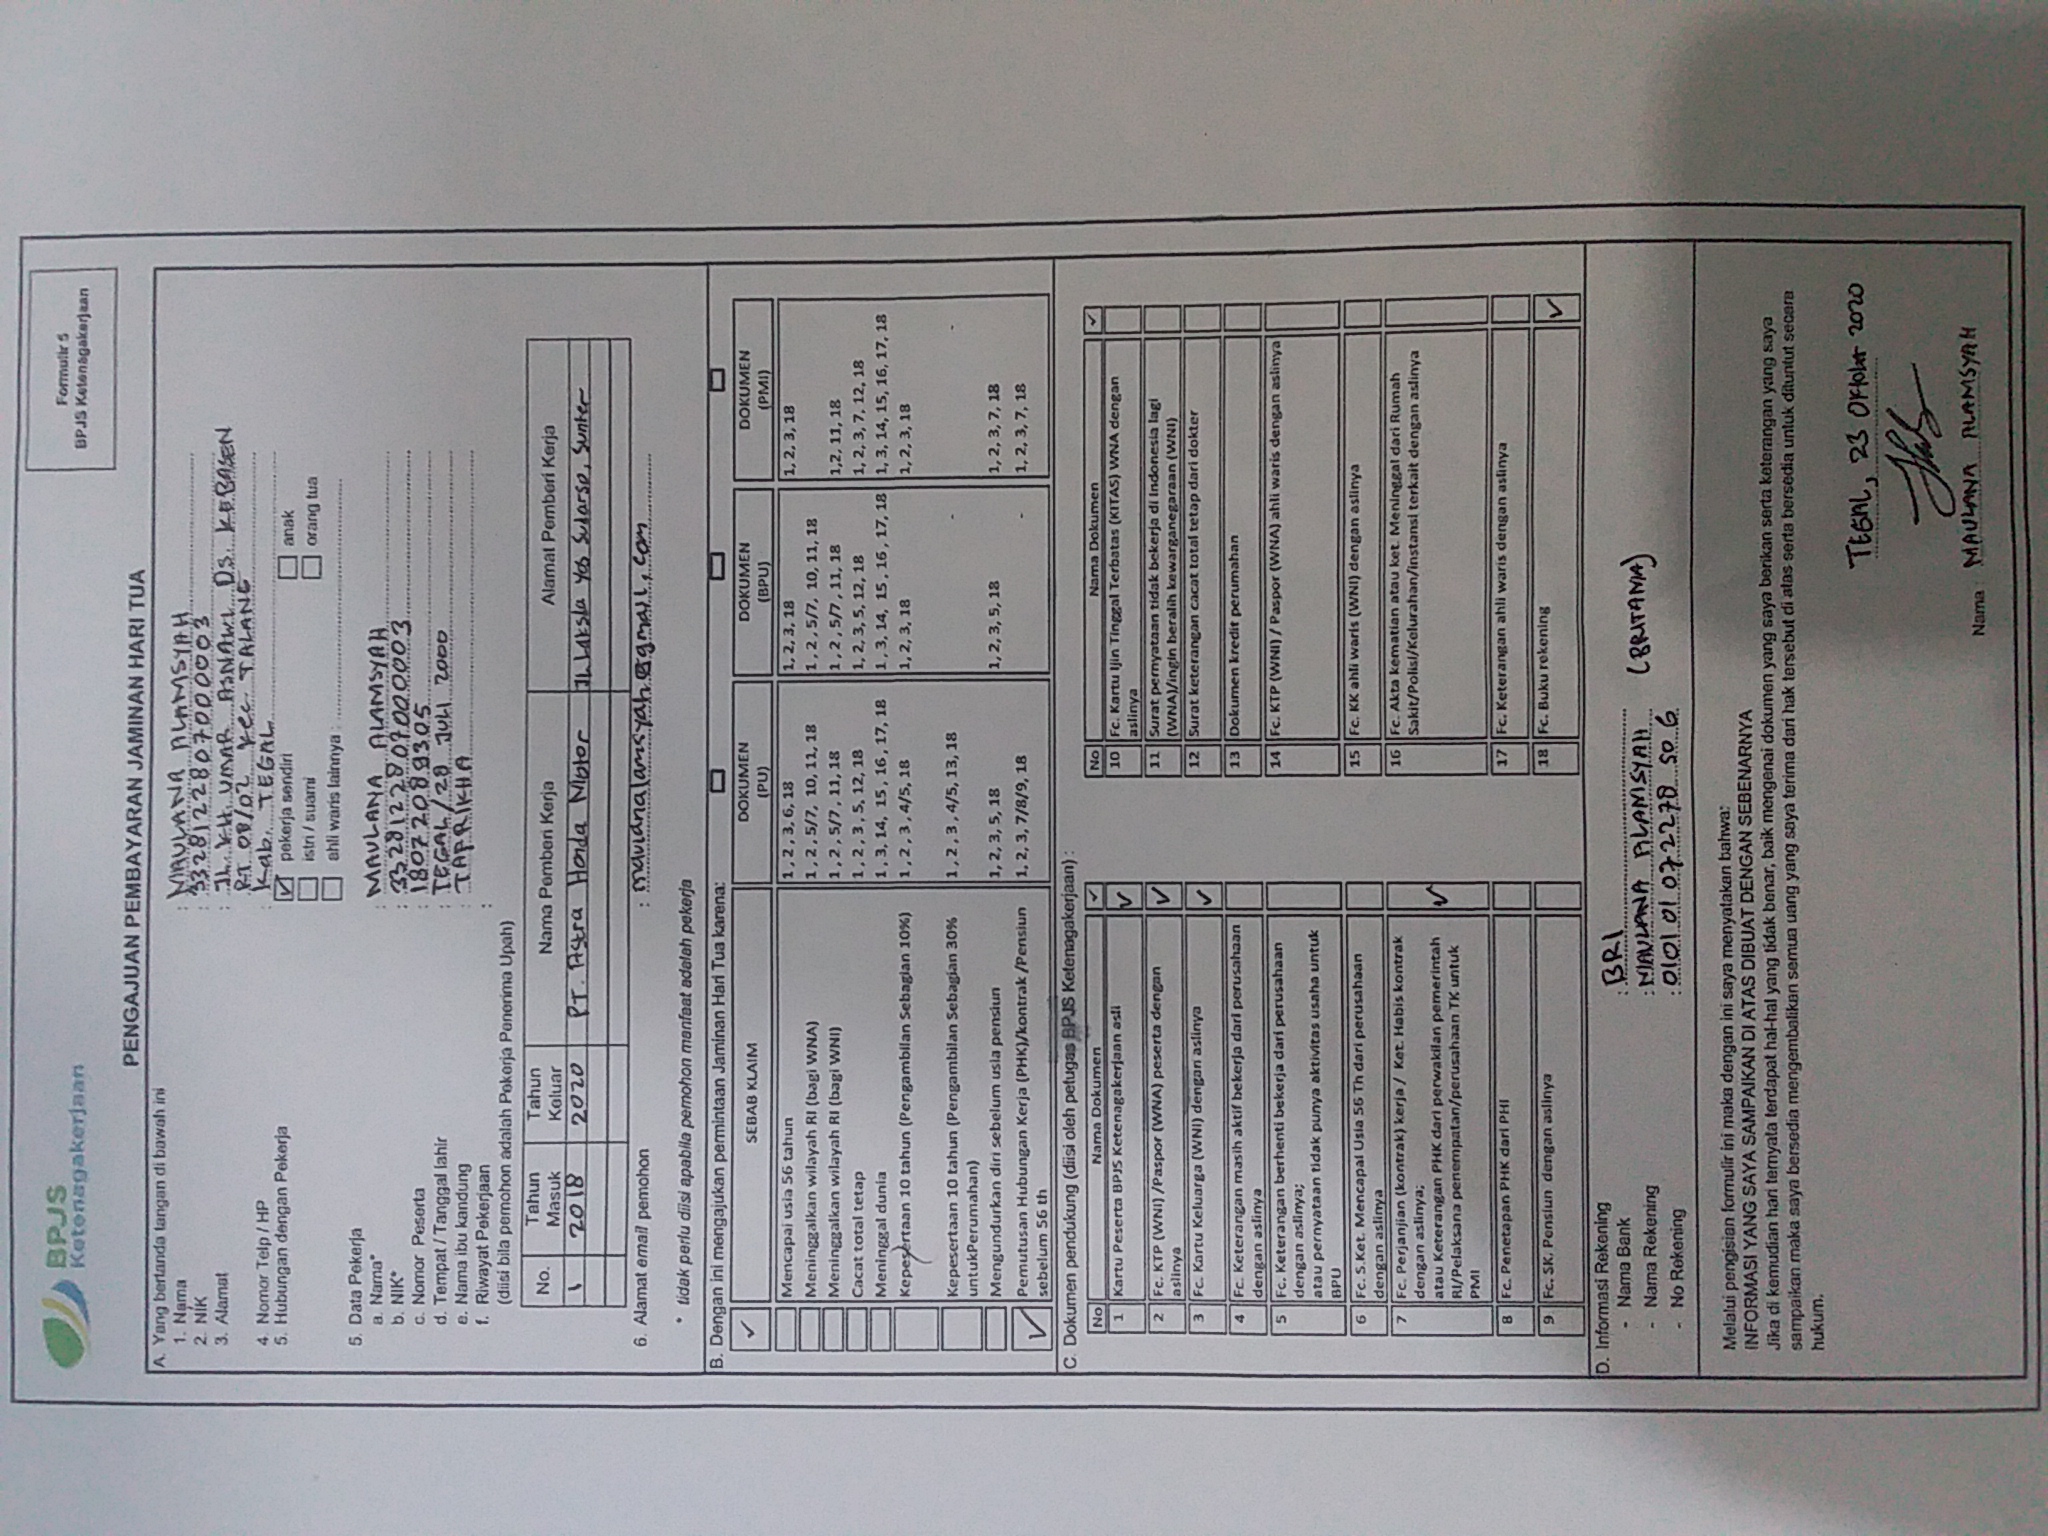 BPJS
Ketenagakerjaan
Formulir 5
BPJS Ketenagakerjaan
PENGAJUAN PEMBAYARAN JAMINAN HARI TUA
A. Yang bertanda tangan di bawah ini
1. Nama : MAULANA ALAMSYAH
2. NIK : 3328122807000003
3. Alamat : JL. KH. UMAR ASNAWI DS. KEBASEN
RT 08/02 Kec TALANG
4. Nomor Telp / HP : Kab. TEGAL
5. Hubungan dengan Pekerja ✓ pekerja sendiri anak
istri / suami orang tua
ahli waris lainnya :
5. Data Pekerja
a. Nama* : MAULANA ALAMSYAH
b. NIK* : 3328122807000003
c. Nomor Peserta : 18072089305
d. Tempat / Tanggal lahir : TEGAL / 28 JULI 2000
e. Nama ibu kandung : TAFRIKHA
f. Riwayat Pekerjaan :
(diisi bila pemohon adalah Pekerja Penerima Upah)
No. Tahun Masuk Tahun Keluar Nama Pemberi Kerja Alamat Pemberi Kerja
1 2018 2020 PT. Astra Honda Motor JL Laksda Yos Sudarso, Sunter
6. Alamat email pemohon : maulanalamsyah@gmail.com
* tidak perlu diisi apabila pemohon manfaat adalah pekerja
B. Dengan ini mengajukan permintaan Jaminan Hari Tua karena:
✓ SEBAB KLAIM DOKUMEN (PU) DOKUMEN (BPU) DOKUMEN (PMI)
Mencapai usia 56 tahun 1, 2, 3, 6, 18 1, 2, 3, 18 1, 2, 3, 18
Meninggalkan wilayah RI (bagi WNA) 1, 2, 5/7, 10, 11, 18 1, 2, 5/7, 10, 11, 18
Meninggalkan wilayah RI (bagi WNI) 1, 2, 5/7, 11, 18 1, 2, 5/7, 11, 18 1,2, 11, 18
Cacat total tetap 1, 2, 3, 5, 12, 18 1, 2, 3, 5, 12, 18 1, 2, 3, 7, 12, 18
Meninggal dunia 1, 3, 14, 15, 16, 17, 18 1, 3, 14, 15, 16, 17, 18 1, 3, 14, 15, 16, 17, 18
Kepesertaan 10 tahun (Pengambilan Sebagian 10%) 1, 2, 3, 4/5, 18 1, 2, 3, 18 1, 2, 3, 18
Kepesertaan 10 tahun (Pengambilan Sebagian 30% 1, 2, 3, 4/5, 13, 18 - -
untukPerumahan)
Mengundurkan diri sebelum usia pensiun 1, 2, 3, 5, 18 1, 2, 3, 5, 18 1, 2, 3, 7, 18
✓ Pemutusan Hubungan Kerja (PHK)/kontrak /Pensiun 1, 2, 3, 7/8/9, 18 - 1, 2, 3, 7, 18
sebelum 56 th
C. Dokumen pendukung (diisi oleh petugas BPJS Ketenagakerjaan) :
No Nama Dokumen ✓
1 Kartu Peserta BPJS Ketenagakerjaan asli ✓
2 Fc. KTP (WNI) /Paspor (WNA) peserta dengan
aslinya ✓
3 Fc. Kartu Keluarga (WNI) dengan aslinya ✓
4 Fc. Keterangan masih aktif bekerja dari perusahaan
dengan aslinya
5 Fc. Keterangan berhenti bekerja dari perusahaan
dengan aslinya;
atau pernyataan tidak punya aktivitas usaha untuk
BPU
6 Fc. S.Ket. Mencapai Usia 56 Th dari perusahaan
dengan aslinya
7 Fc. Perjanjian (kontrak) kerja / Ket. Habis kontrak
dengan aslinya;
atau Keterangan PHK dari perwakilan pemerintah
RI/Pelaksana penempatan/perusahaan TK untuk
PMI ✓
8 Fc. Penetapan PHK dari PHI
9 Fc. SK. Pensiun dengan aslinya
No Nama Dokumen ✓
10 Fc. Kartu Ijin Tinggal Terbatas (KITAS) WNA dengan
aslinya
11 Surat pernyataan tidak bekerja di Indonesia lagi
(WNA)/ingin beralih kewarganegaraan (WNI)
12 Surat keterangan cacat total tetap dari dokter
13 Dokumen kredit perumahan
14 Fc. KTP (WNI) / Paspor (WNA) ahli waris dengan aslinya
15 Fc. KK ahli waris (WNI) dengan aslinya
16 Fc. Akta kematian atau ket. Meninggal dari Rumah
Sakit/Polisi/Kelurahan/instansi terkait dengan aslinya
17 Fc. Keterangan ahli waris dengan aslinya
18 Fc. Buku rekening ✓
D. Informasi Rekening
- Nama Bank : BRI
- Nama Rekening : MAULANA ALAMSYAH (BRITAMA)
- No Rekening : 0101 01 072278 50 6
Melalui pengisian formulir ini maka dengan ini saya menyatakan bahwa:
INFORMASI YANG SAYA SAMPAIKAN DI ATAS DIBUAT DENGAN SEBENARNYA
Jika di kemudian hari ternyata terdapat hal-hal yang tidak benar, baik mengenai dokumen yang saya berikan serta keterangan yang saya
sampaikan maka saya bersedia mengembalikan semua uang yang saya terima dari hak tersebut di atas serta bersedia untuk dituntut secara
hukum.
TEGAL, 23 Oktober 2020
Nama : MAULANA ALAMSYAH